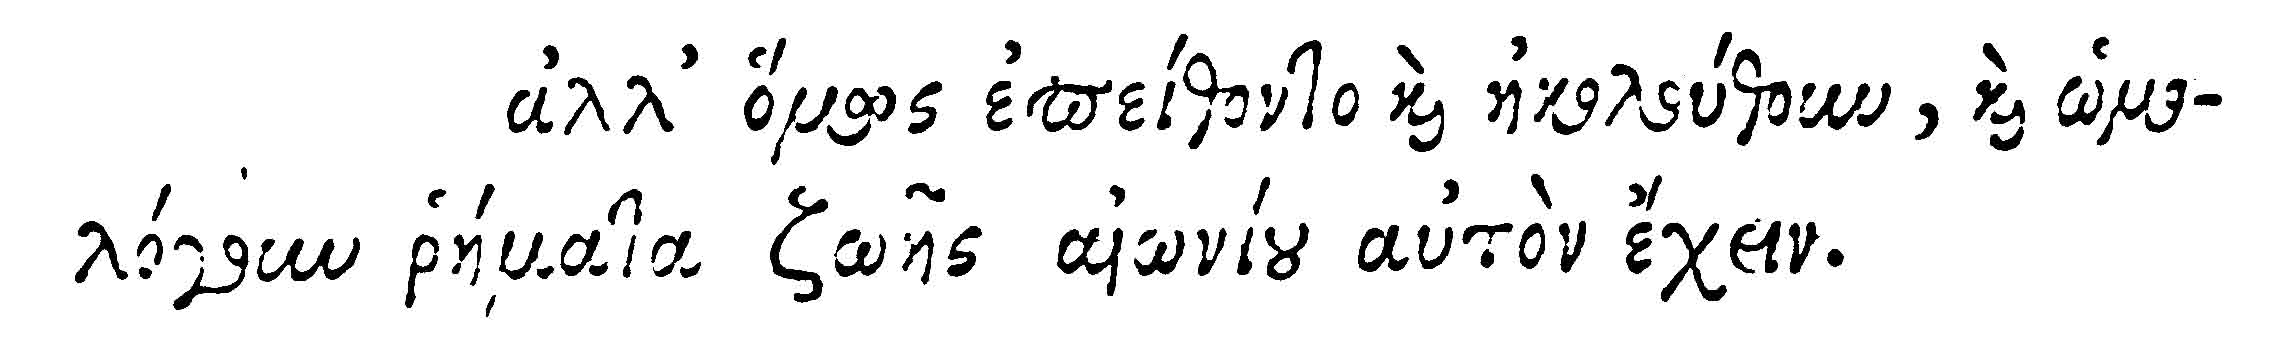 ἀλλ' ὅμως ἐπείθοντο καὶ ἠκολούθουν, καὶ ὡμο-
λόγουν ῥήματα ζωῆς αἰωνίου αὐτὸν ἔχειν.